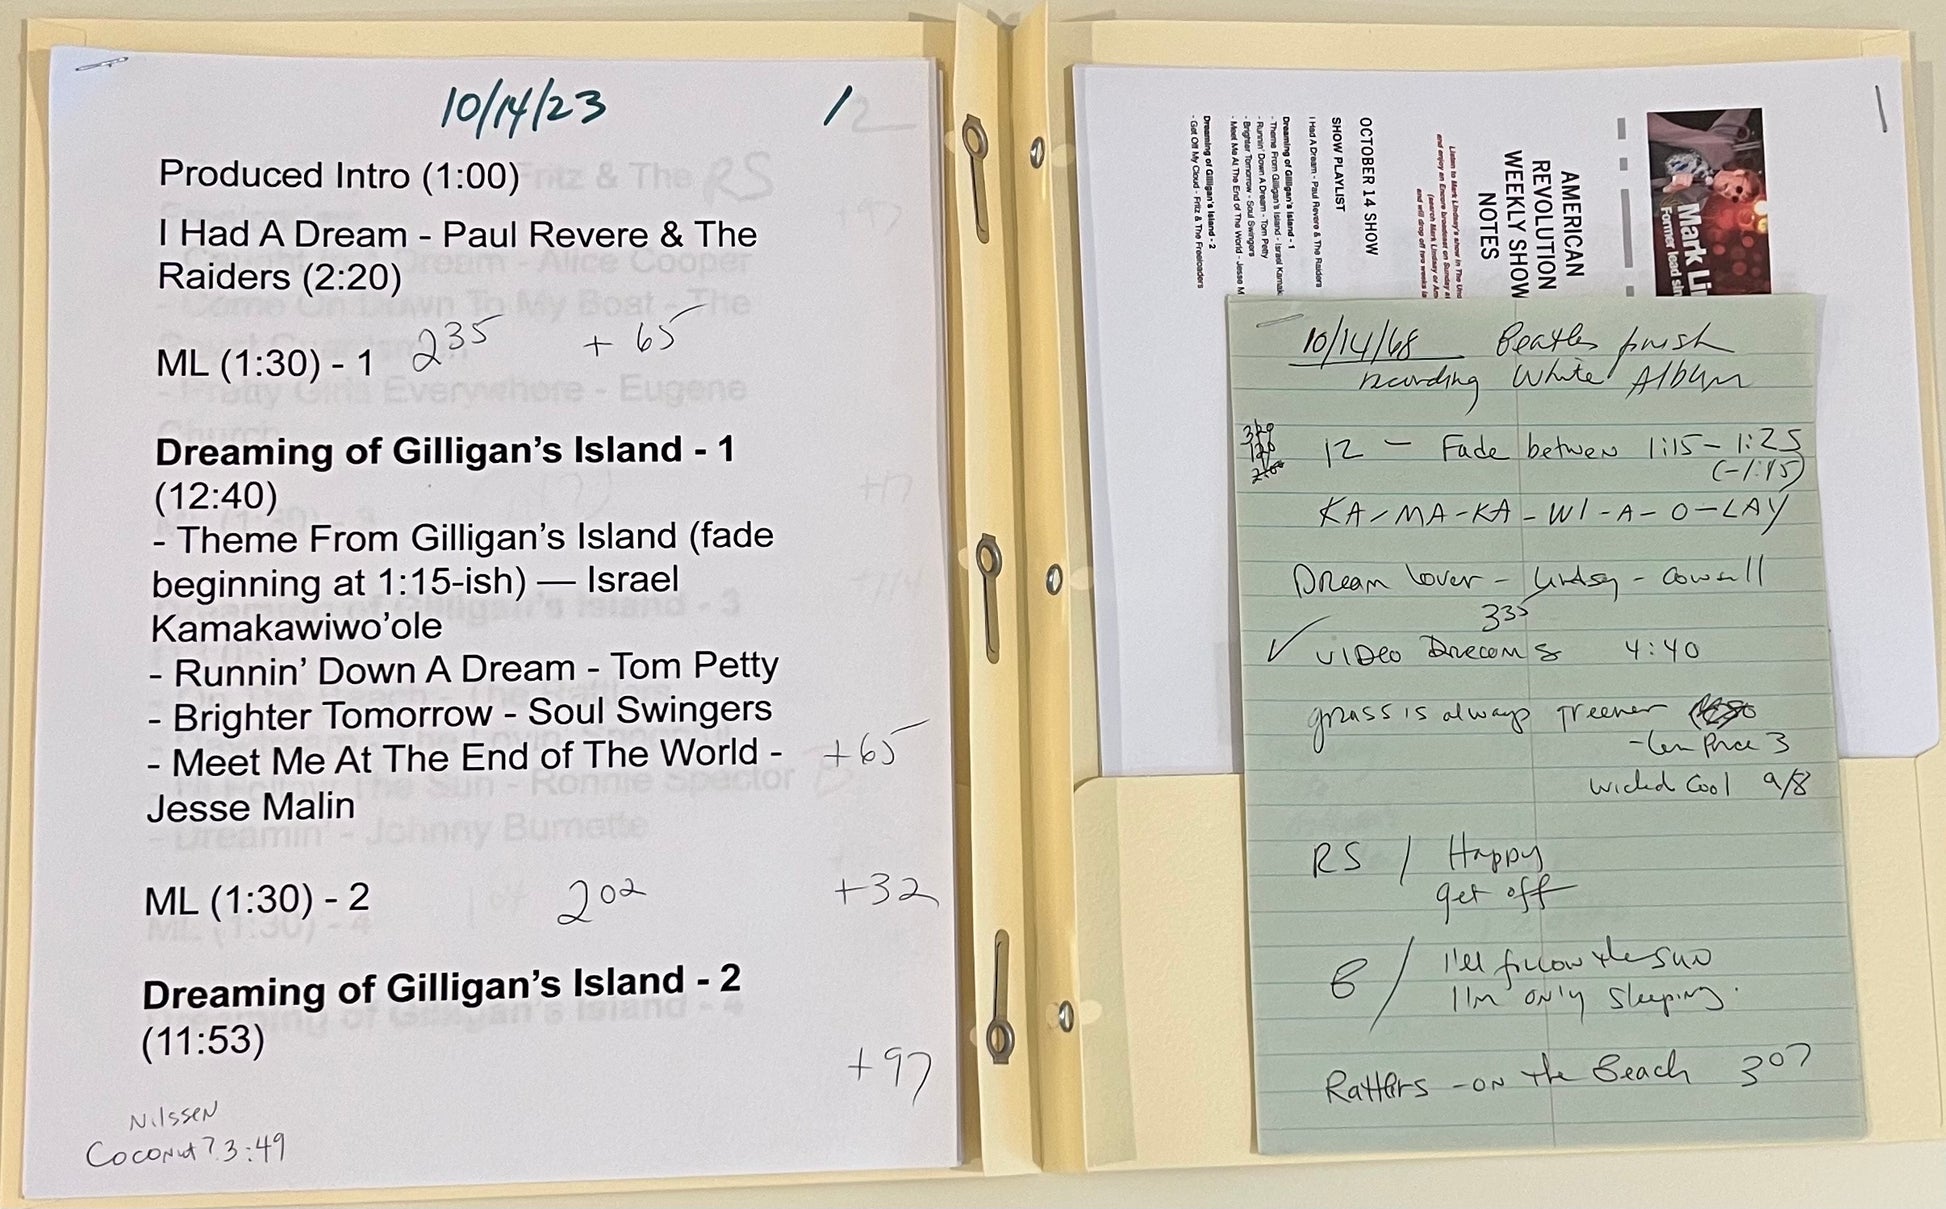 10/14/23 1
Produced Intro (1:00)
I Had A Dream - Paul Revere & The
Raiders (2:20)
ML (1:30) - 1 235 + 65
Dreaming of Gilligan's Island - 1
(12:40)
- Theme From Gilligan's Island (fade
beginning at 1:15-ish) — Israel
Kamakawiwo'ole
- Runnin' Down A Dream - Tom Petty
- Brighter Tomorrow - Soul Swingers
- Meet Me At The End of The World - +65
Jesse Malin
ML (1:30) - 2 202 +32
Dreaming of Gilligan's Island - 2
(11:53)
+97
Nilssen
Coconut? 3:49
Mark Li
Former lead si
AMERICAN
REVOLUTION
WEEKLY SHOW
NOTES
Listen to Mark Lindsay's show in The Und
and enjoy an Encore broadcast on Sunday a
(search Mark Lindsay or Am
and will drop off two weeks la
OCTOBER 14 SHOW
SHOW PLAYLIST
I Had A Dream - Paul Revere & The Raiders
Dreaming of Gilligan's Island - 1
- Theme From Gilligan's Island - Israel Kamak
- Runnin' Down A Dream - Tom Petty
- Brighter Tomorrow - Soul Swingers
- Meet Me At The End of The World - Jesse M
Dreaming of Gilligan's Island - 2
- Get Off My Cloud - Fritz & The Freeloaders
10/14/68 Beatles finish
recording White Album
12 - Fade between 1:15 - 1:25
(-1:15)
KA-MA-KA-WI-A-O-LAY
Dream lover - Lindsay - Cowsill
335
✓ VIDEO Dreams 4:40
grass is always greener
3
Wicked Cool 9/8
RS / Happy
get off
B / I'll follow the sun
I'm only sleeping.
Rattlers - on the Beach 307